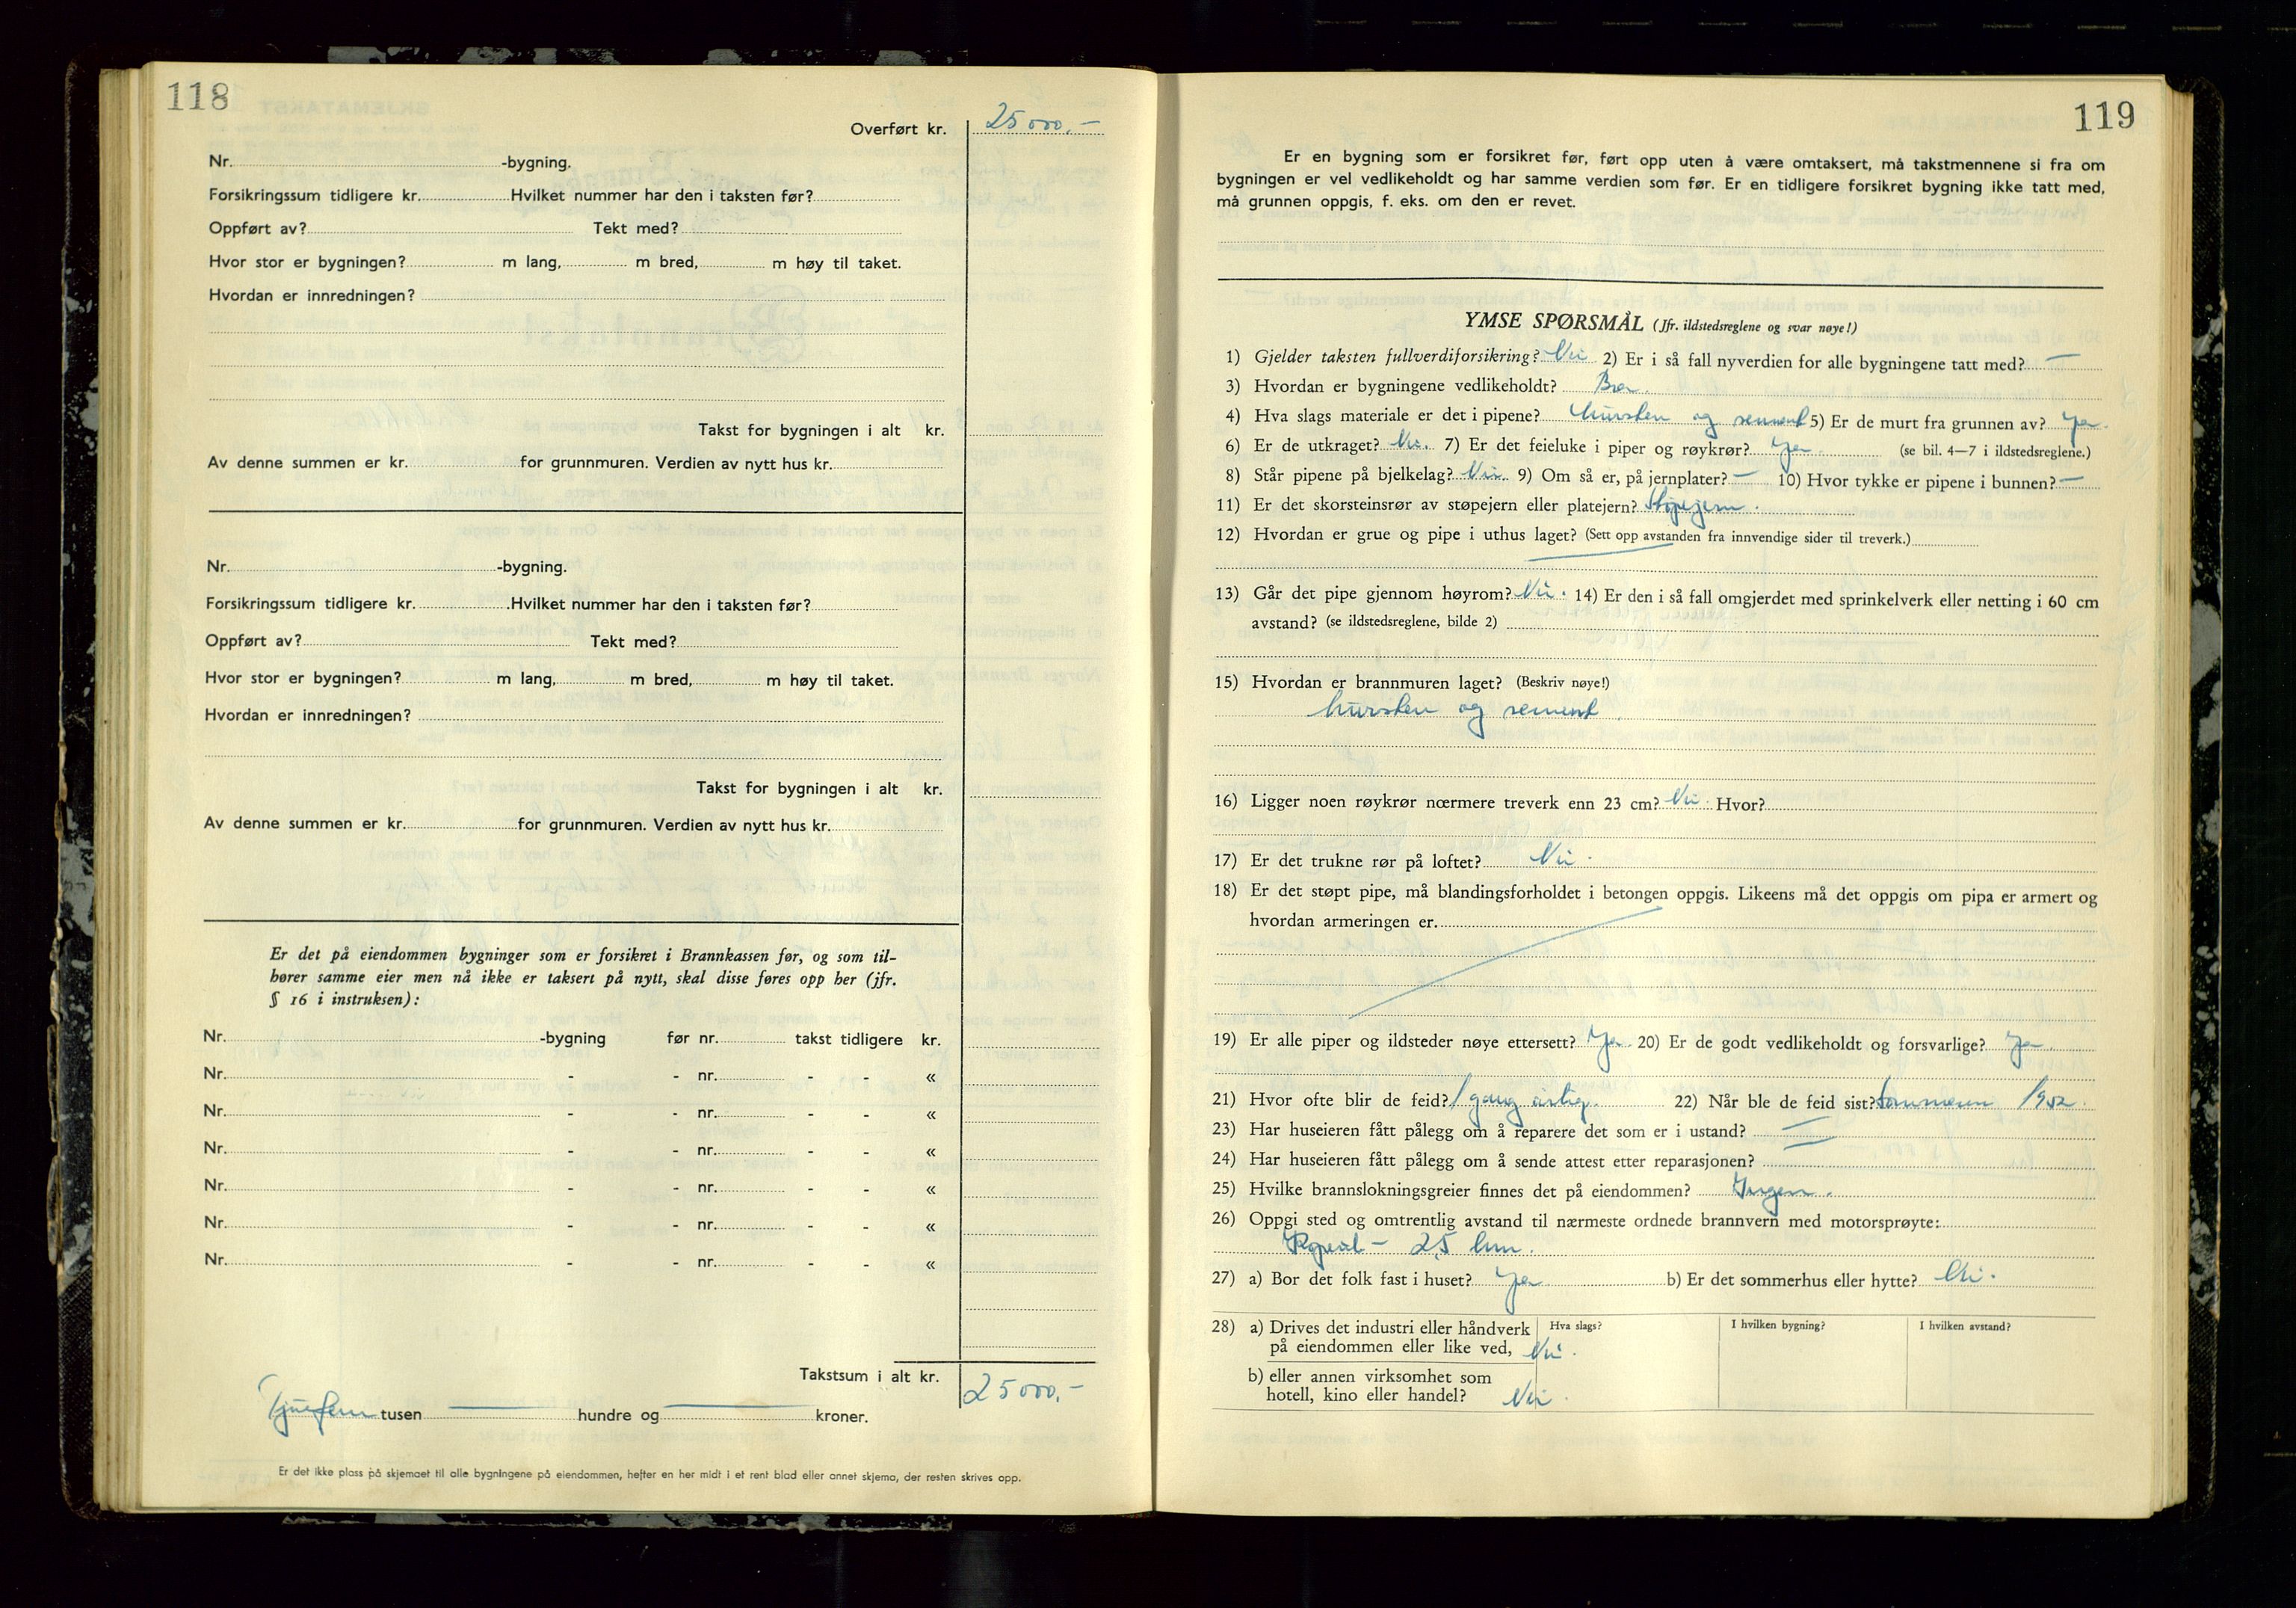 118
Overført kr. 25 000.-
Nr. -bygning.
Forsikringssum tidligere kr. Hvilket nummer har den i taksten før?
Oppført av? Tekt med?
Hvor stor er bygningen? m lang, m bred, m høy til taket.
Hvordan er innredningen?
Takst for bygningen i alt kr.
Av denne summen er kr. for grunnmuren. Verdien av nytt hus kr.
Nr. -bygning.
Forsikringssum tidligere kr. Hvilket nummer har den i taksten før?
Oppført av? Tekt med?
Hvor stor er bygningen? m lang, m bred, m høy til taket.
Hvordan er innredningen?
Takst for bygningen i alt kr.
Av denne summen er kr. for grunnmuren. Verdien av nytt hus kr.
Er det på eiendommen bygninger som er forsikret i Brannkassen før, og som til-
hører samme eier men nå ikke er taksert på nytt, skal disse føres opp her (jfr.
§ 16 i instruksen):
Nr. -bygning før nr. takst tidligere kr.
Nr. - - nr. - - «
Nr. - - nr. - - «
Nr. - - nr. - - «
Nr. - - nr. - - «
Nr. - - nr. - - «
Nr. - - nr. - - «
Takstsum i alt kr. 25 000,-
Tjuefem tusen — hundre og — kroner.
Er det ikke plass på skjemaet til alle bygningene på eiendommen, hefter en her midt i et rent blad eller annet skjema, der resten skrives opp.
119
Er en bygning som er forsikret før, ført opp uten å være omtaksert, må takstmennene si fra om
bygningen er vel vedlikeholdt og har samme verdien som før. Er en tidligere forsikret bygning ikke tatt med,
må grunnen oppgis, f. eks. om den er revet.
YMSE SPØRSMÅL (Jfr. ildstedsreglene og svar nøye!)
1) Gjelder taksten fullverdiforsikring? Nei 2) Er i så fall nyverdien for alle bygningene tatt med? —
3) Hvordan er bygningene vedlikeholdt? Bra.
4) Hva slags materiale er det i pipene? Mursten og sement 5) Er de murt fra grunnen av? Ja.
6) Er de utkraget? Nei. 7) Er det feieluke i piper og røykrør? Ja (se bil. 4—7 i ildstedsreglene.)
8) Står pipene på bjelkelag? Nei. 9) Om så er, på jernplater? — 10) Hvor tykke er pipene i bunnen? —
11) Er det skorsteinsrør av støpejern eller platejern? Støpejern.
12) Hvordan er grue og pipe i uthus laget? (Sett opp avstanden fra innvendige sider til treverk.)
13) Går det pipe gjennom høyrom? Nei. 14) Er den i så fall omgjerdet med sprinkelverk eller netting i 60 cm
avstand? (se ildstedsreglene, bilde 2)
15) Hvordan er brannmuren laget? (Beskriv nøye!)
Mursten og sement.
16) Ligger noen røykrør nærmere treverk enn 23 cm? Nei. Hvor?
17) Er det trukne rør på loftet? Nei.
18) Er det støpt pipe, må blandingsforholdet i betongen oppgis. Likeens må det oppgis om pipa er armert og
hvordan armeringen er.
19) Er alle piper og ildsteder nøye ettersett? Ja 20) Er de godt vedlikeholdt og forsvarlige? Ja.
21) Hvor ofte blir de feid? 1 gang årlig. 22) Når ble de feid sist? Sommeren 1952.
23) Har huseieren fått pålegg om å reparere det som er i ustand? —
24) Har huseieren fått pålegg om å sende attest etter reparasjonen?
25) Hvilke brannslokningsgreier finnes det på eiendommen? Ingen.
26) Oppgi sted og omtrentlig avstand til nærmeste ordnede brannvern med motorsprøyte:
- 25 km.
27) a) Bor det folk fast i huset? Ja b) Er det sommerhus eller hytte? Nei.
28) a) Drives det industri eller håndverk Hva slags? I hvilken bygning? I hvilken avstand?
på eiendommen eller like ved, Nei.
b) eller annen virksomhet som
hotell, kino eller handel? Nei.